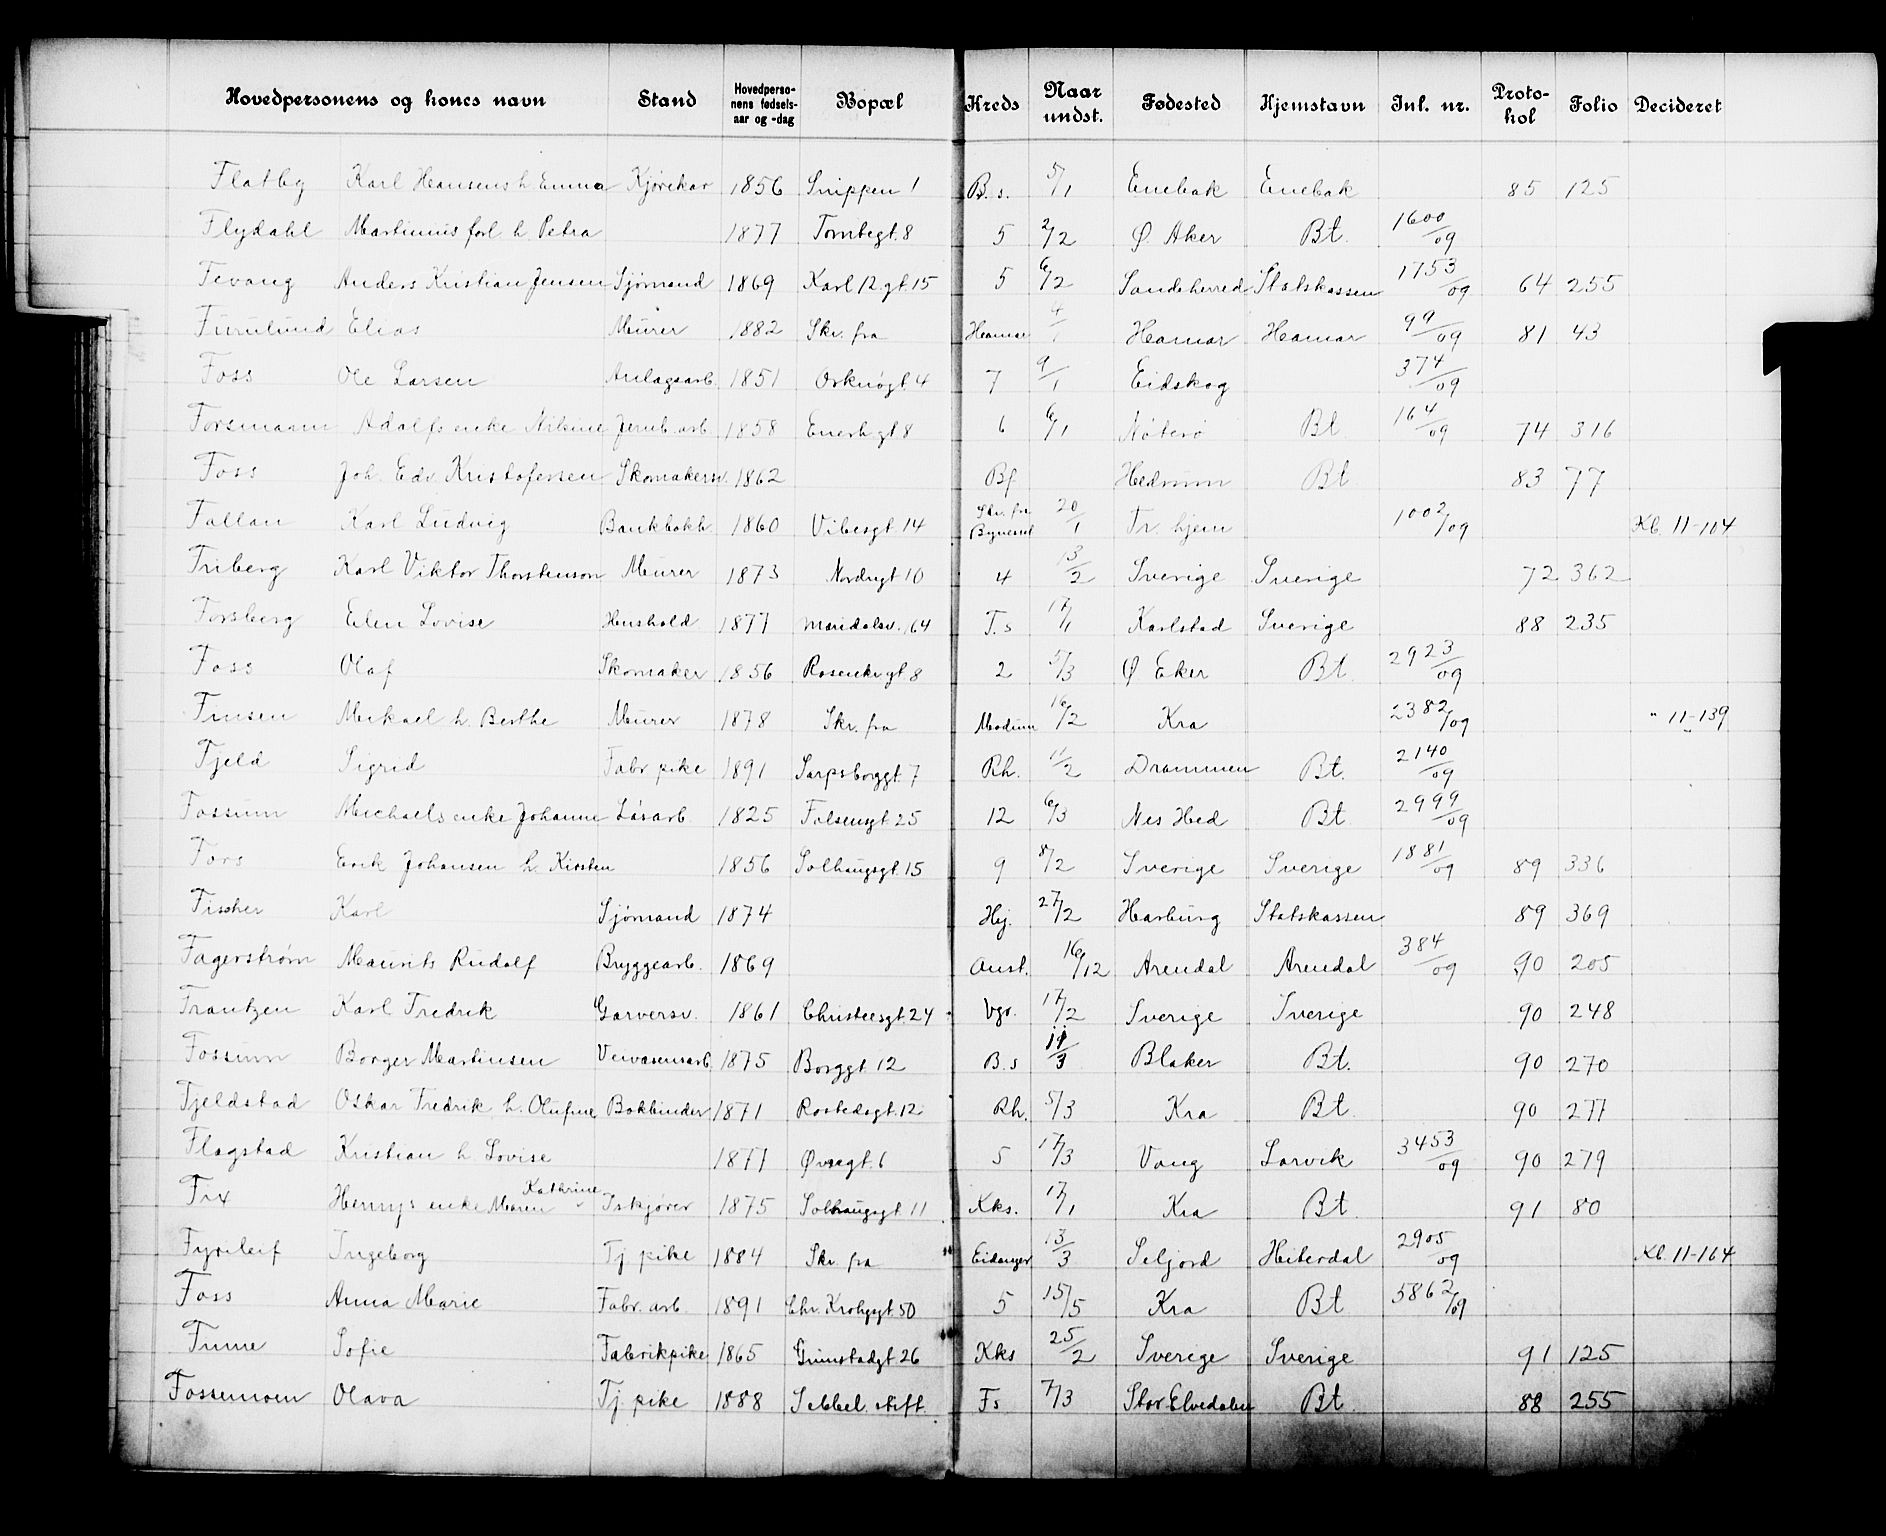 Hovedpersonens og kones navn Stand Hovedperso-nens fødsels-aar og -dag Bopæl Kreds Naar undst. Fødested Hjemstavn Inl. nr. Proto-kol Folio Decideret
Flatby Karl Hansens h. Emma Kjørekar 1856 Snippen 1 B.s. 5/1 Enebak Enebak 85 125
Flydahl Martinius forl. h. Petra 1877 Tomtegt. 8 5 2/2 Ø. Aker Bt. 1600/09
Fevang Anders Kristian Jensen Sjømand 1869 Karl 12 gt. 15 5 6/2 Sandeherred Statskassen 1753/09 64 255
Furulund Elias Murer 1882 Skr. fra Hamar Hamar Hamar 99/09 81 43
Foss Ole Larsen Anlagsarb. 1851 Orknøgt 4 7 9/1 Eidskog 374/09
Forsmann Adolfs enke Nilsine Jernb. arb. 1858 Enerhgt 8 6 6/1 Nøterø Bt. 164/09 74 316
Foss Joh. Edv. Kristofersen Skomakersv. 1862 Bf Hedrum Bt 83 77
Fallan Karl Ludvig Bankbokh. 1860 Vibesgt 14 Skr. fra Bynesset 20/1 Tr. hjem 1002/09 Kb. 11-104
Friberg Karl Viktor Thorstenson Murer 1873 Nordregt 10 4 13/2 Sverige Sverige 72 362
Forsberg Elen Lovise Hushold 1877 Maridalsv. 164 T.s 17/1 Karlstad Sverige 88 235
Foss Olaf Skomaker 1856 Rosenkrgt 8 2 5/3 Ø Eker Bt. 2923/09
Finsen Mikael h. Berthe Murer 1878 Skr. fra Modum 16/2 Kra 2382/09 " 11-139
Fjeld Sigrid Fabr pike 1891 Sarpsborggt. 7 Rh. 11/2 Drammen Bt. 2140/09
Fossum Michaels enke Johanne Løsarb. 1825 Falsensgt. 25 12 6/3 Nes Hed Bt 2999/09
Fors Erik Johansen h. Kirsten 1856 Solhaugsgt. 15 9 8/2 Sverige Sverige 1881/09 89 336
Fischer Karl Sjømand 1874 Hj. 27/2 Harburg Statskassen 89 369
Fagerstrøm Maurits Rudolf Bryggearb. 1869 Aust. 16/12 Arendal Arendal 384/09 90 205
Frantzen Karl Fredrik Garversv. 1861 Christiesgt. 24 Vgr. 17/2 Sverige Sverige 90 248
Fossum Borger Martinsen Veivæsensarb. 1875 Borggt. 12 B.s 11/3 Blaker Bt. 90 270
Fjeldstad Oskar Fredrik h. Olufine Bokbinder 1871 Rostedsgt. 12 Rh. 5/3 Kra Bt. 90 277
Flagstad Kristian h. Lovise 1877 Øvregt. 6 5 17/3 Vang Larvik 3453/09 90 279
Fix Henrys enke Maren Kathrine Iskjører 1875 Solhaugsgt. 11 Kks. 17/1 Kra Bt. 91 80
Fyrileif Ingeborg Tj pike 1884 Skr. fra Eidanger 13/3 Seljord Hiterdal 2905/09 Kb. 11-164
Foss Anna Marie Fabr. arb. 1891 Chr. Krohgsgt 50 5 15/5 Kra Bt 5862/09
Fume Sofie Fabrikpike 1865 Grimstadgt. 26 Kks 25/2 Sverige Sverige 91 125
Fossemoen Olava Tj. pike 1888 Sebbel. stift. Fs 7/3 Stor Elvedalen Bt. 88 255